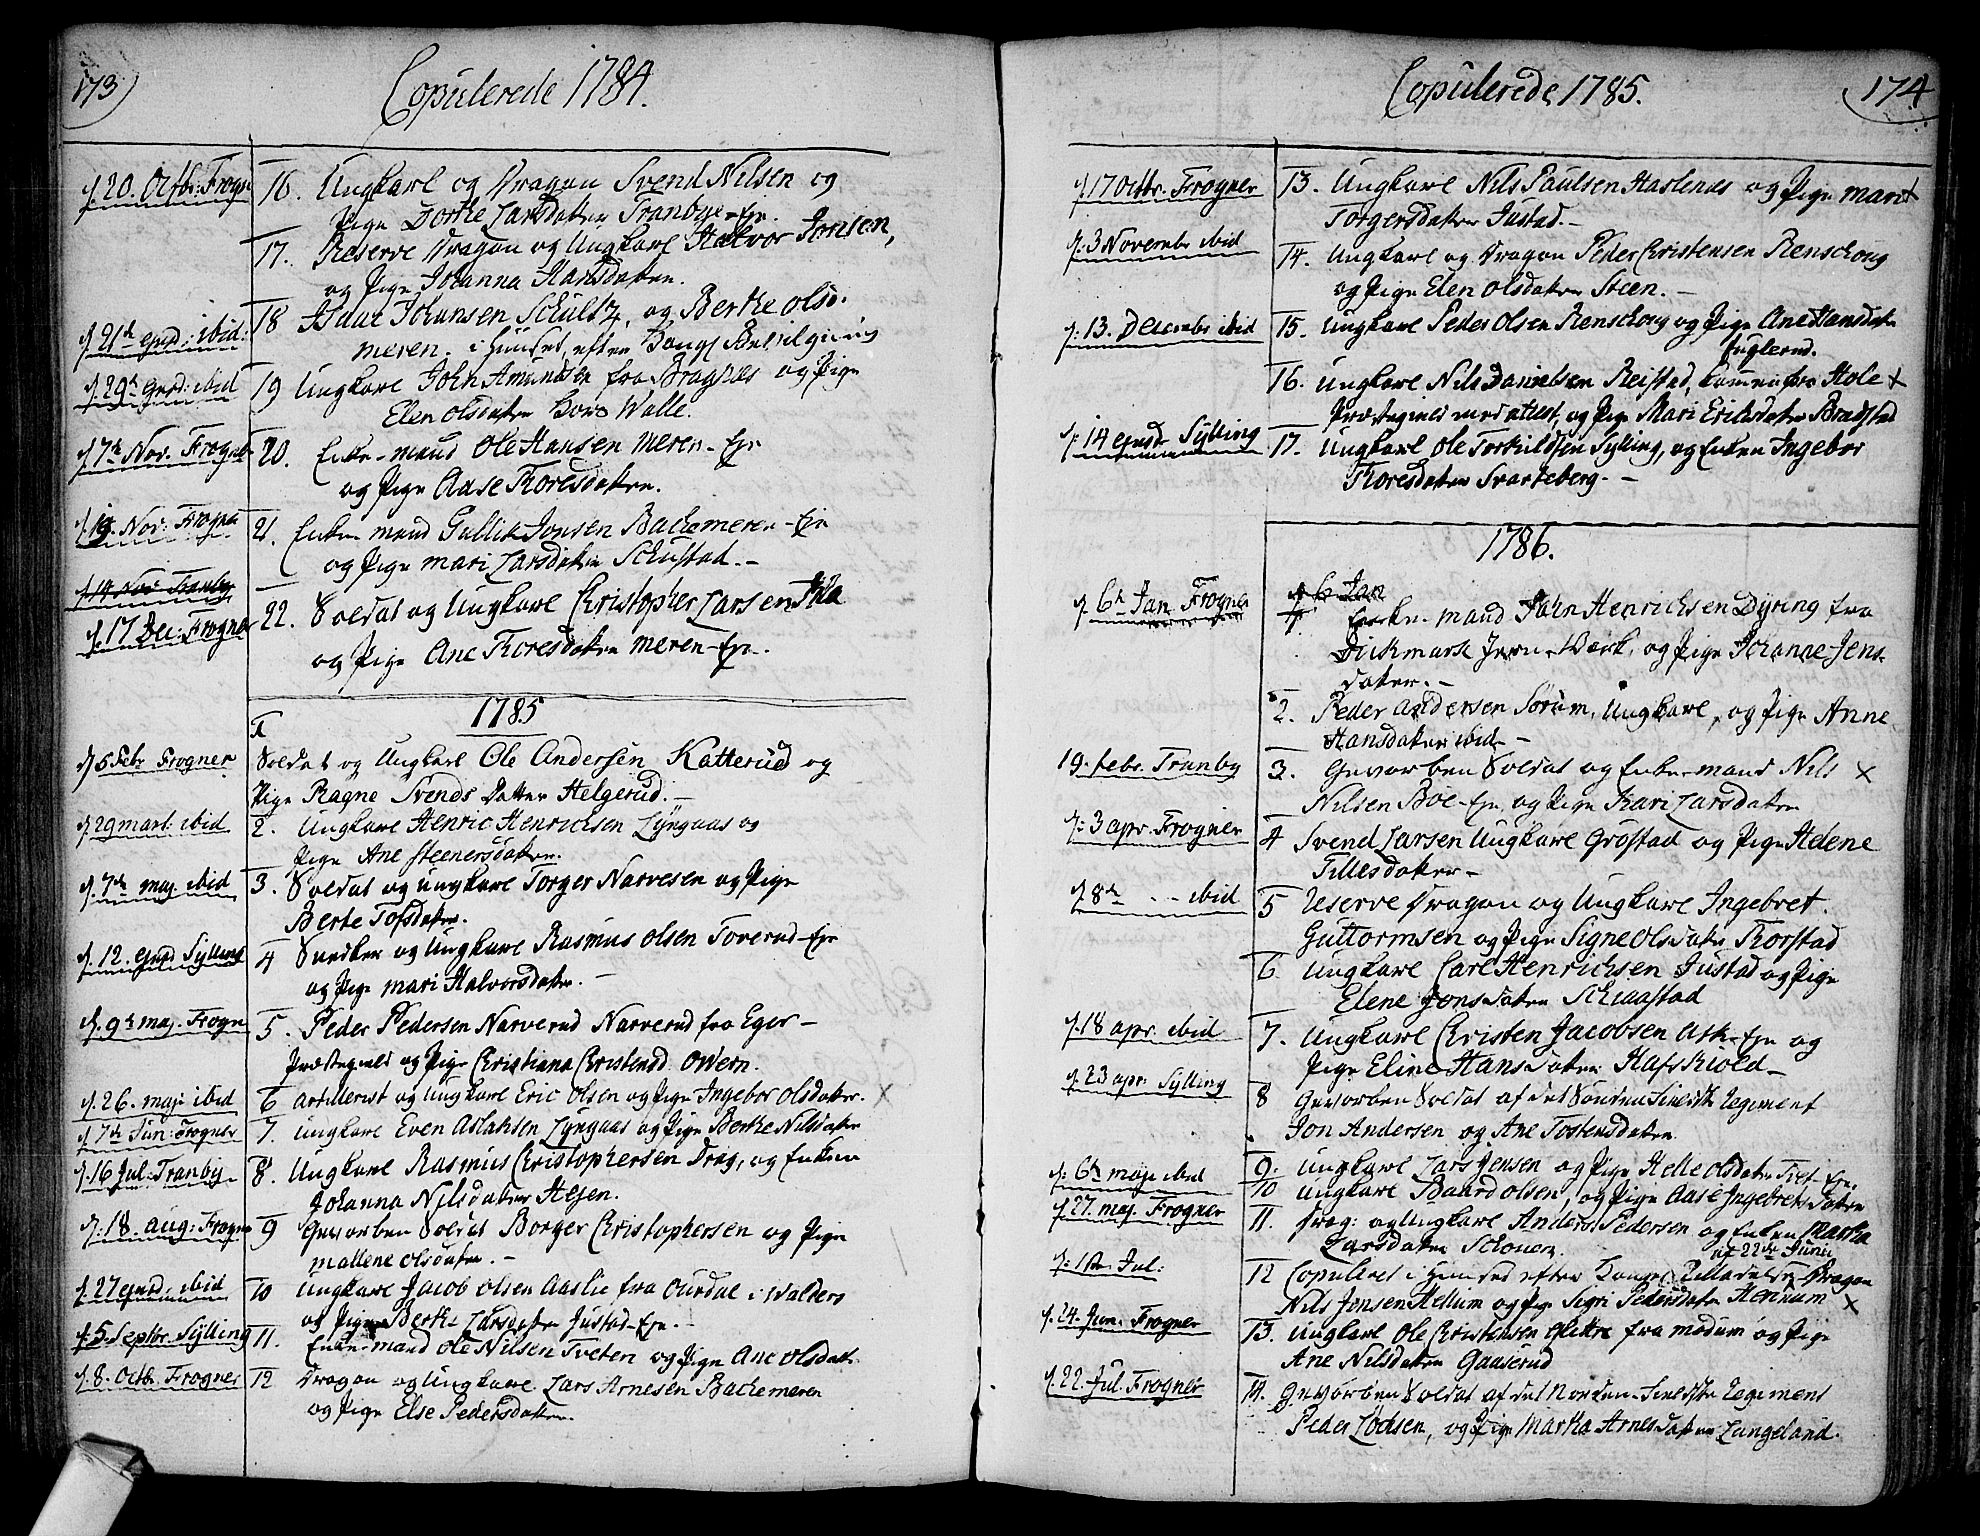 173
Copulerede 1784.
d. 20. Octbr: Frogn 16. Ungkarl og Dragon Svend Nilsen og
Pige Dorthe Larsdatter Tranbye-Eje.
17. Reserve Dragon og Ungkarl Halvor Jonsen,
og Pige Johanna Hansdatter.
d. 21de ejusd: ibid. 18 Isaac Johansen Schultz, og Berthe Olsd.
meren. i Huuset, efter Kongl Bevilgning
d. 29de ejusd: ibid 19 Ungkarl John Amundsen fra Bragnæs og Pige
Elen Olsdatter Walle.
d. 7de Nov. Frogner 20. Enke-mand Ole Hansen meren-Eje
og Pige Aase Thoresdatter.
Nov: Frogner 21. Enke mand Gullik Jonsen Bachemeren-Eje
og Pige mari Larsdatter Schustad.-
d. 14 Nov Tranby
d. 17 Dec: Frogner 22. Soldat og Ungkarl Christopher Larsen
og Pige Ane Thoresdatter meren-Eje.
1785
1
d. 5 Febr Frogner Soldat og Ungkarl Ole Andersen Katterud og
Pige Ragne Svends Datter Helgerud.-
d. 29 mart. ibid 2. Ungkarl Henric Henrichsen Lyngaas og
Pige Ane Steenersdatter.
d. 7de maj. ibid 3. Soldat og Ungkarl Torger Narvesen og Pige
Berte Tofsdatter.
d. 12. ejusd Sylling 4 Snedker og Ungkarl Rasmus Olsen Toverud-Eje
og Pige mari Halvorsdatter.-
d. 9de maj. Frogn 5. Peder Pedersen Narverud Narverud fra Eger-
Præstegield og Pige Christiana Christensd. Owern.
d. 26. maji ibid 6 Artillerist og Ungkarl Eric Olsen og Pige Ingebor Olsdatter. x
d. 7de Jun: Frogner 7. Ungkarl Even Aslaksen Lyngaas og Pige Berthe Nilsdatter
d. 16 Jul: Tranby 8. Ungkarl Rasmus Christophersen Drag, og Enken
Johanna Nilsdatter Hejen.
d. 18. aug: Frogner 9 Gevorben Soldat Borger Christophersen og Pige
mallene Olsdatter.-
d. 27 ejusd. ibid 10 Ungkarl Jacob Olsen Aaslie fra Ourdal i Walders
og Pige Berthe Larsdatter Justad-Eje.-
d. 5. Septbr. Sylling 11. Enke-mand Ole Nilsen Tveten og Pige Ane Olsdatt.
d. 8. Octb. Frogner 12 Dragon og Ungkarl Lars Arnesen Bachemeren
og Pige Else Pedersdatter.
Copulerede 1785.
174
d. 17 Octbr. Frogner 13. Ungkarl Nils Paulsen Haslenes og Pige marit x
Torgersdatter Justad.-
d. 3 Novembr ibid 14. Ungkarl og Dragon Peder Christensen Renschoug
og Pige Elen Olsdatter Steen.-
d. 13. Decembr ibid 15. Ungkarl Peder Olsen Renschoug og Pige Ane Hansdatter
Fuglerud.
16. Ungkarl Nils Danielsen Reistad, kommen fra Hole x
Præstegield med attest, og Pige Mari Ericksdatter Bradstad
d. 14 ejusd: Sylling 17. Ungkarl Ole Torkildsen Sylling, og Enken Ingebor
Thoresdatter Svarteberg.-
1786.
d. 6te Jan Frogner
d 6 Jan
1. Enke-mand John Henrichsen Dyring fra
Dickmark Jern-Værk, og Pige Johanne Jens-
datter.-
2. Peder Andersen Sørum, Ungkarl, og Pige Anne
Hansdatter ibid-
19. febr. Tranby 3. Gevorben Soldat og Enke-mand Nils x
Nilsen Bøe-Eje og Pige Kari Larsdatter
d. 3 apr. Frogner 4 Svend Larsen Ungkarl Grøstad og Pige Helene
Tillesdatter-
d. 8de -- ibid 5 Reserve Dragon og Ungkarl Ingebret.
Guttormsen og Pige Signe Olsdatter Thorstad
6 Ungkarl Carl Henrichsen Justad og Pige
Elene Jonsdatter Schaastad
d. 18 apr. ibid 7. Ungkarl Christen Jacobsen Ask-Eje og
Pige Eline Hansdatter Hafskiold-
d. 23 apr. Sylling 8 Gevorben Soldat af det Sønden Regiment
Jon Andersen og Ane Tostensdatter
d. 6te maji ibid 9. Ungkarl Lars Jensen og Pige Helle Olsdatter Eje.
10 Ungkarl Baard Olsen, og Pige Aase Ingebretsdatter
d. 27. maj. Frogner 11. Drag: og Ungkarl Anders Pedersen og Enken Martha
Larsdatter Schouen.
d. 22de Junii
d. 1ste Jul: 12 Copuleret i Huuset efter Kongl Dragon
Nils Jonsen Hellum og Pige Sigri Pedersdatter x
d. 24. Jun. Frogner 13. Ungkarl Ole Christensen fra modum og Pige
Ane Nilsdatter Gaaserud
d. 22. Jul. Frogner 14. Gevorben Soldat af det Norden Regiment
Peder Lochsen, og Pige Martha Arnesdatter Langeland.